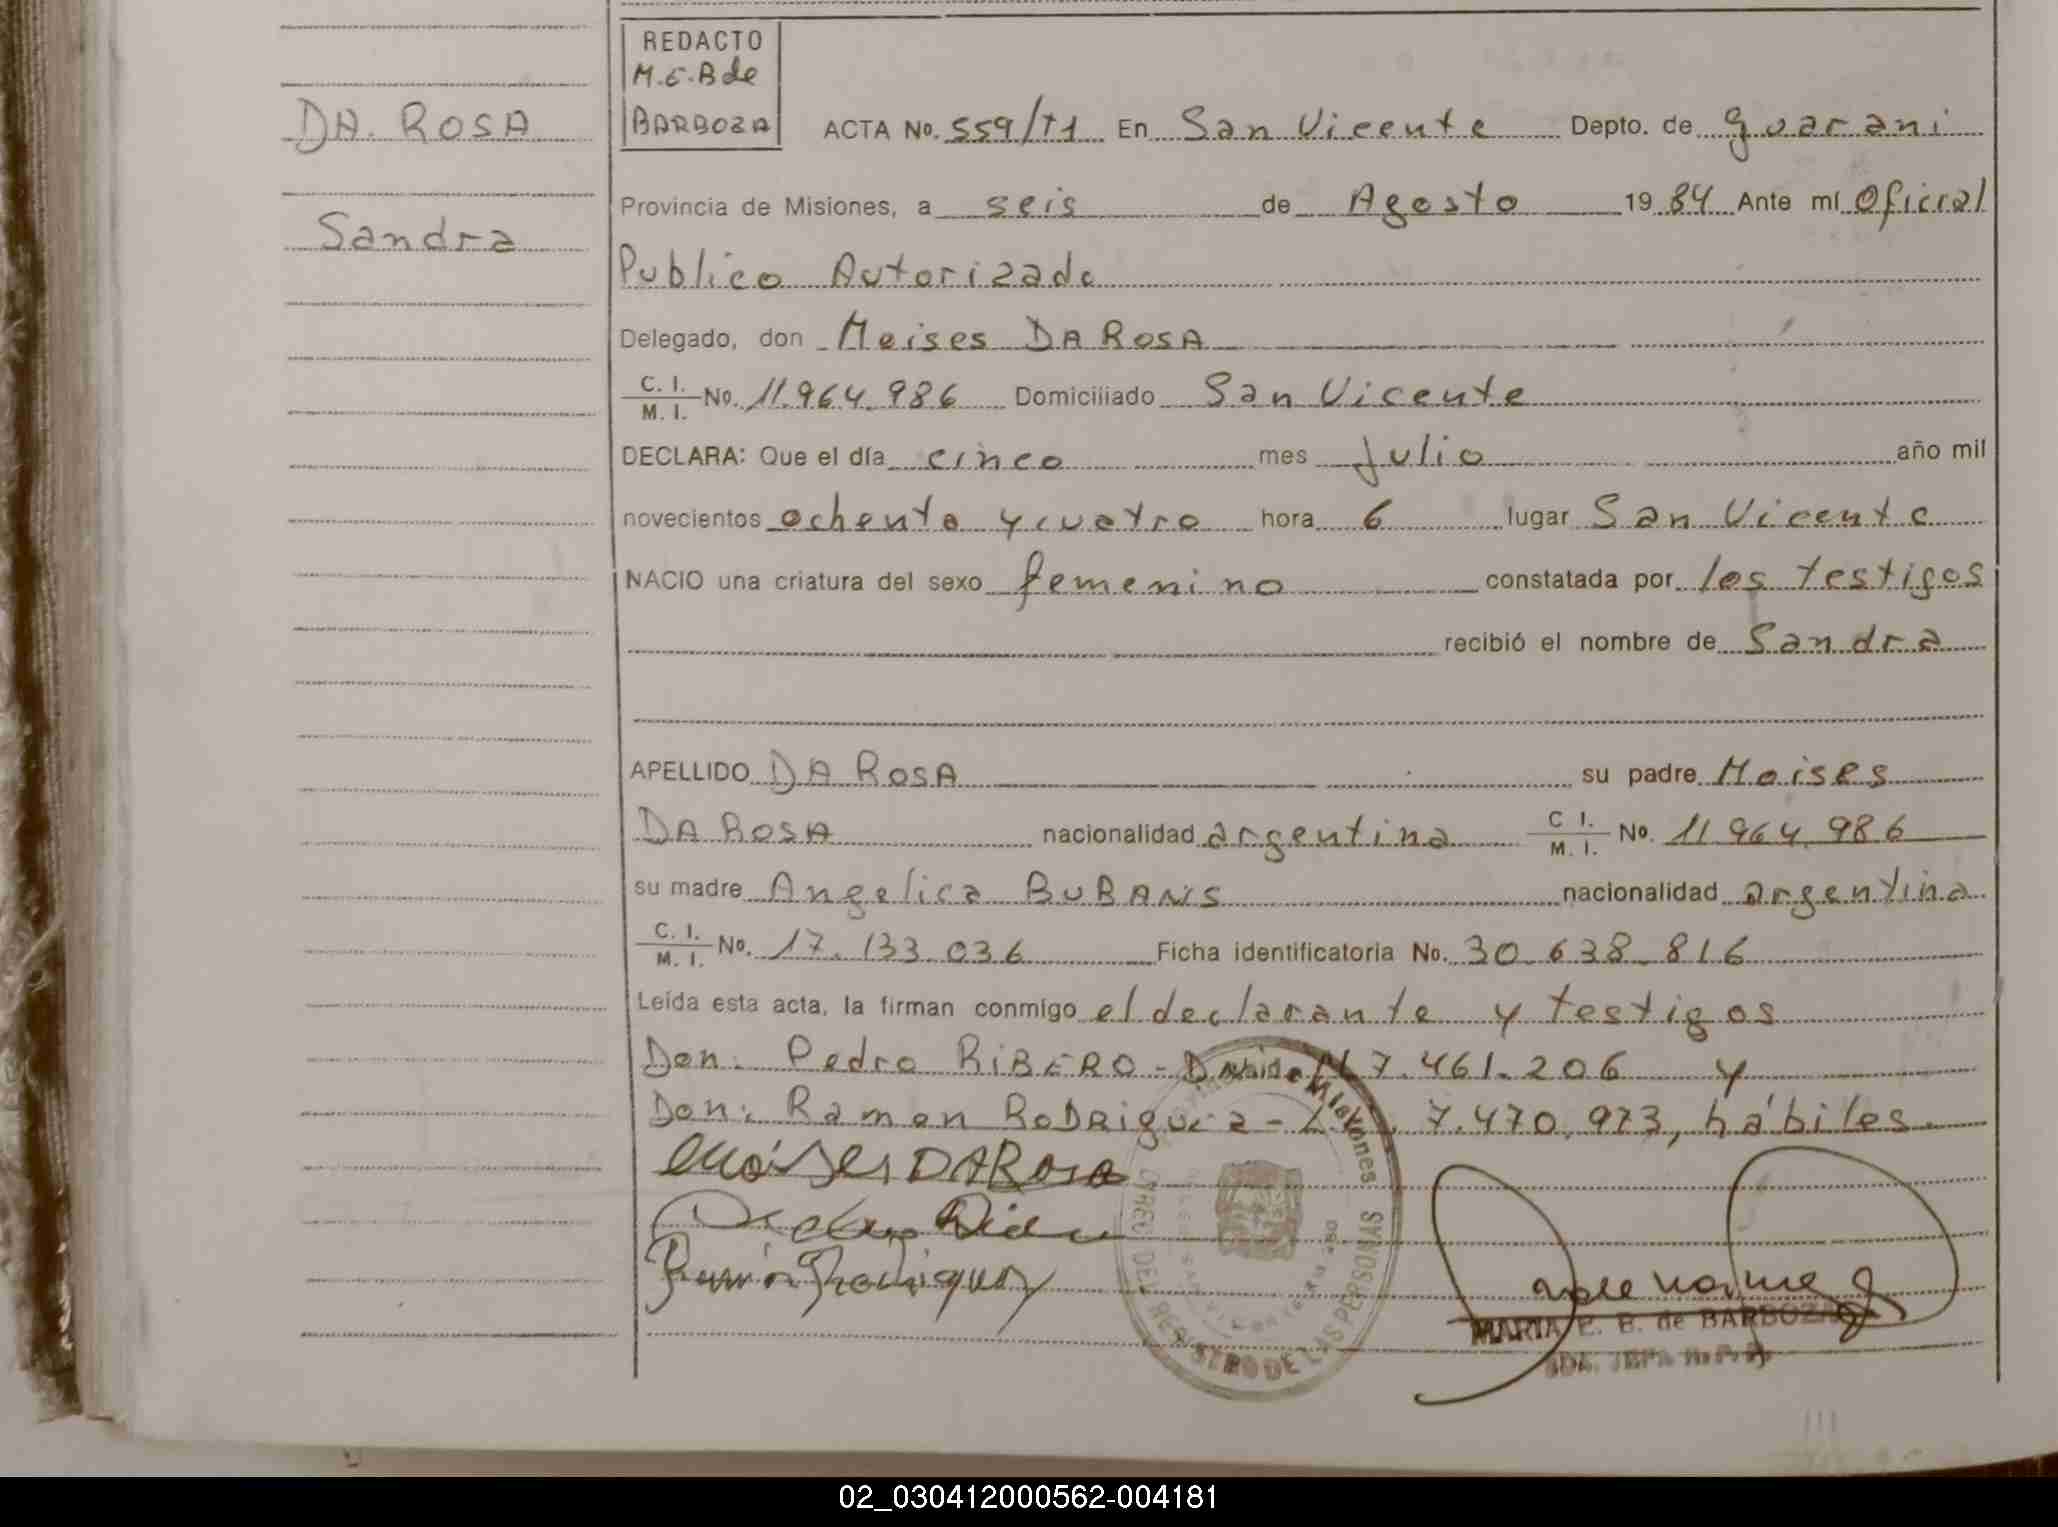 DA. ROSA
Sandra
REDACTO
M.E.B de
BARBOZA
ACTA No. 559/T1 En San Vicente Depto. de Guarani
Provincia de Misiones, a seis de Agosto 19 84 Ante mí Oficial
Publico Autorizado
Delegado, don Moises DA ROSA
C. I.
M. I. No. 11.964.986 Domiciliado San Vicente
DECLARA: Que el día cinco mes Julio año mil
novecientos ochenta y cuatro hora 6 lugar San Vicente
NACIO una criatura del sexo femenino constatada por los testigos
recibió el nombre de Sandra
APELLIDO DA ROSA su padre Moises
DA ROSA nacionalidad argentina C I.
M. I. No. 11.964.986
su madre Angelica BUBANS nacionalidad argentina
C. I.
M. I. No. 17.133.036 Ficha identificatoria No. 30.638.816
Leída esta acta, la firman conmigo el declarante y testigos
Don: Pedro RIBERO - 7.461.206 y
Don: Ramon RODRIGUEZ - 7.470.973, hábiles.
Moises DA Rosa
Ramón Rodriguez
MARIA E. B. de BARBOZA
DE MISIONES
DIREC. DEL REGISTRO DE LAS PERSONAS
02_030412000562-004181